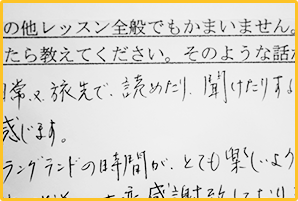 の他レッスン全般でもかまいません。
たら教えてください。そのような話が
常、又、旅先で、読めたり、聞けたりする
感じます。
ラングランドの時間が、とても楽しいよう
感謝致しており